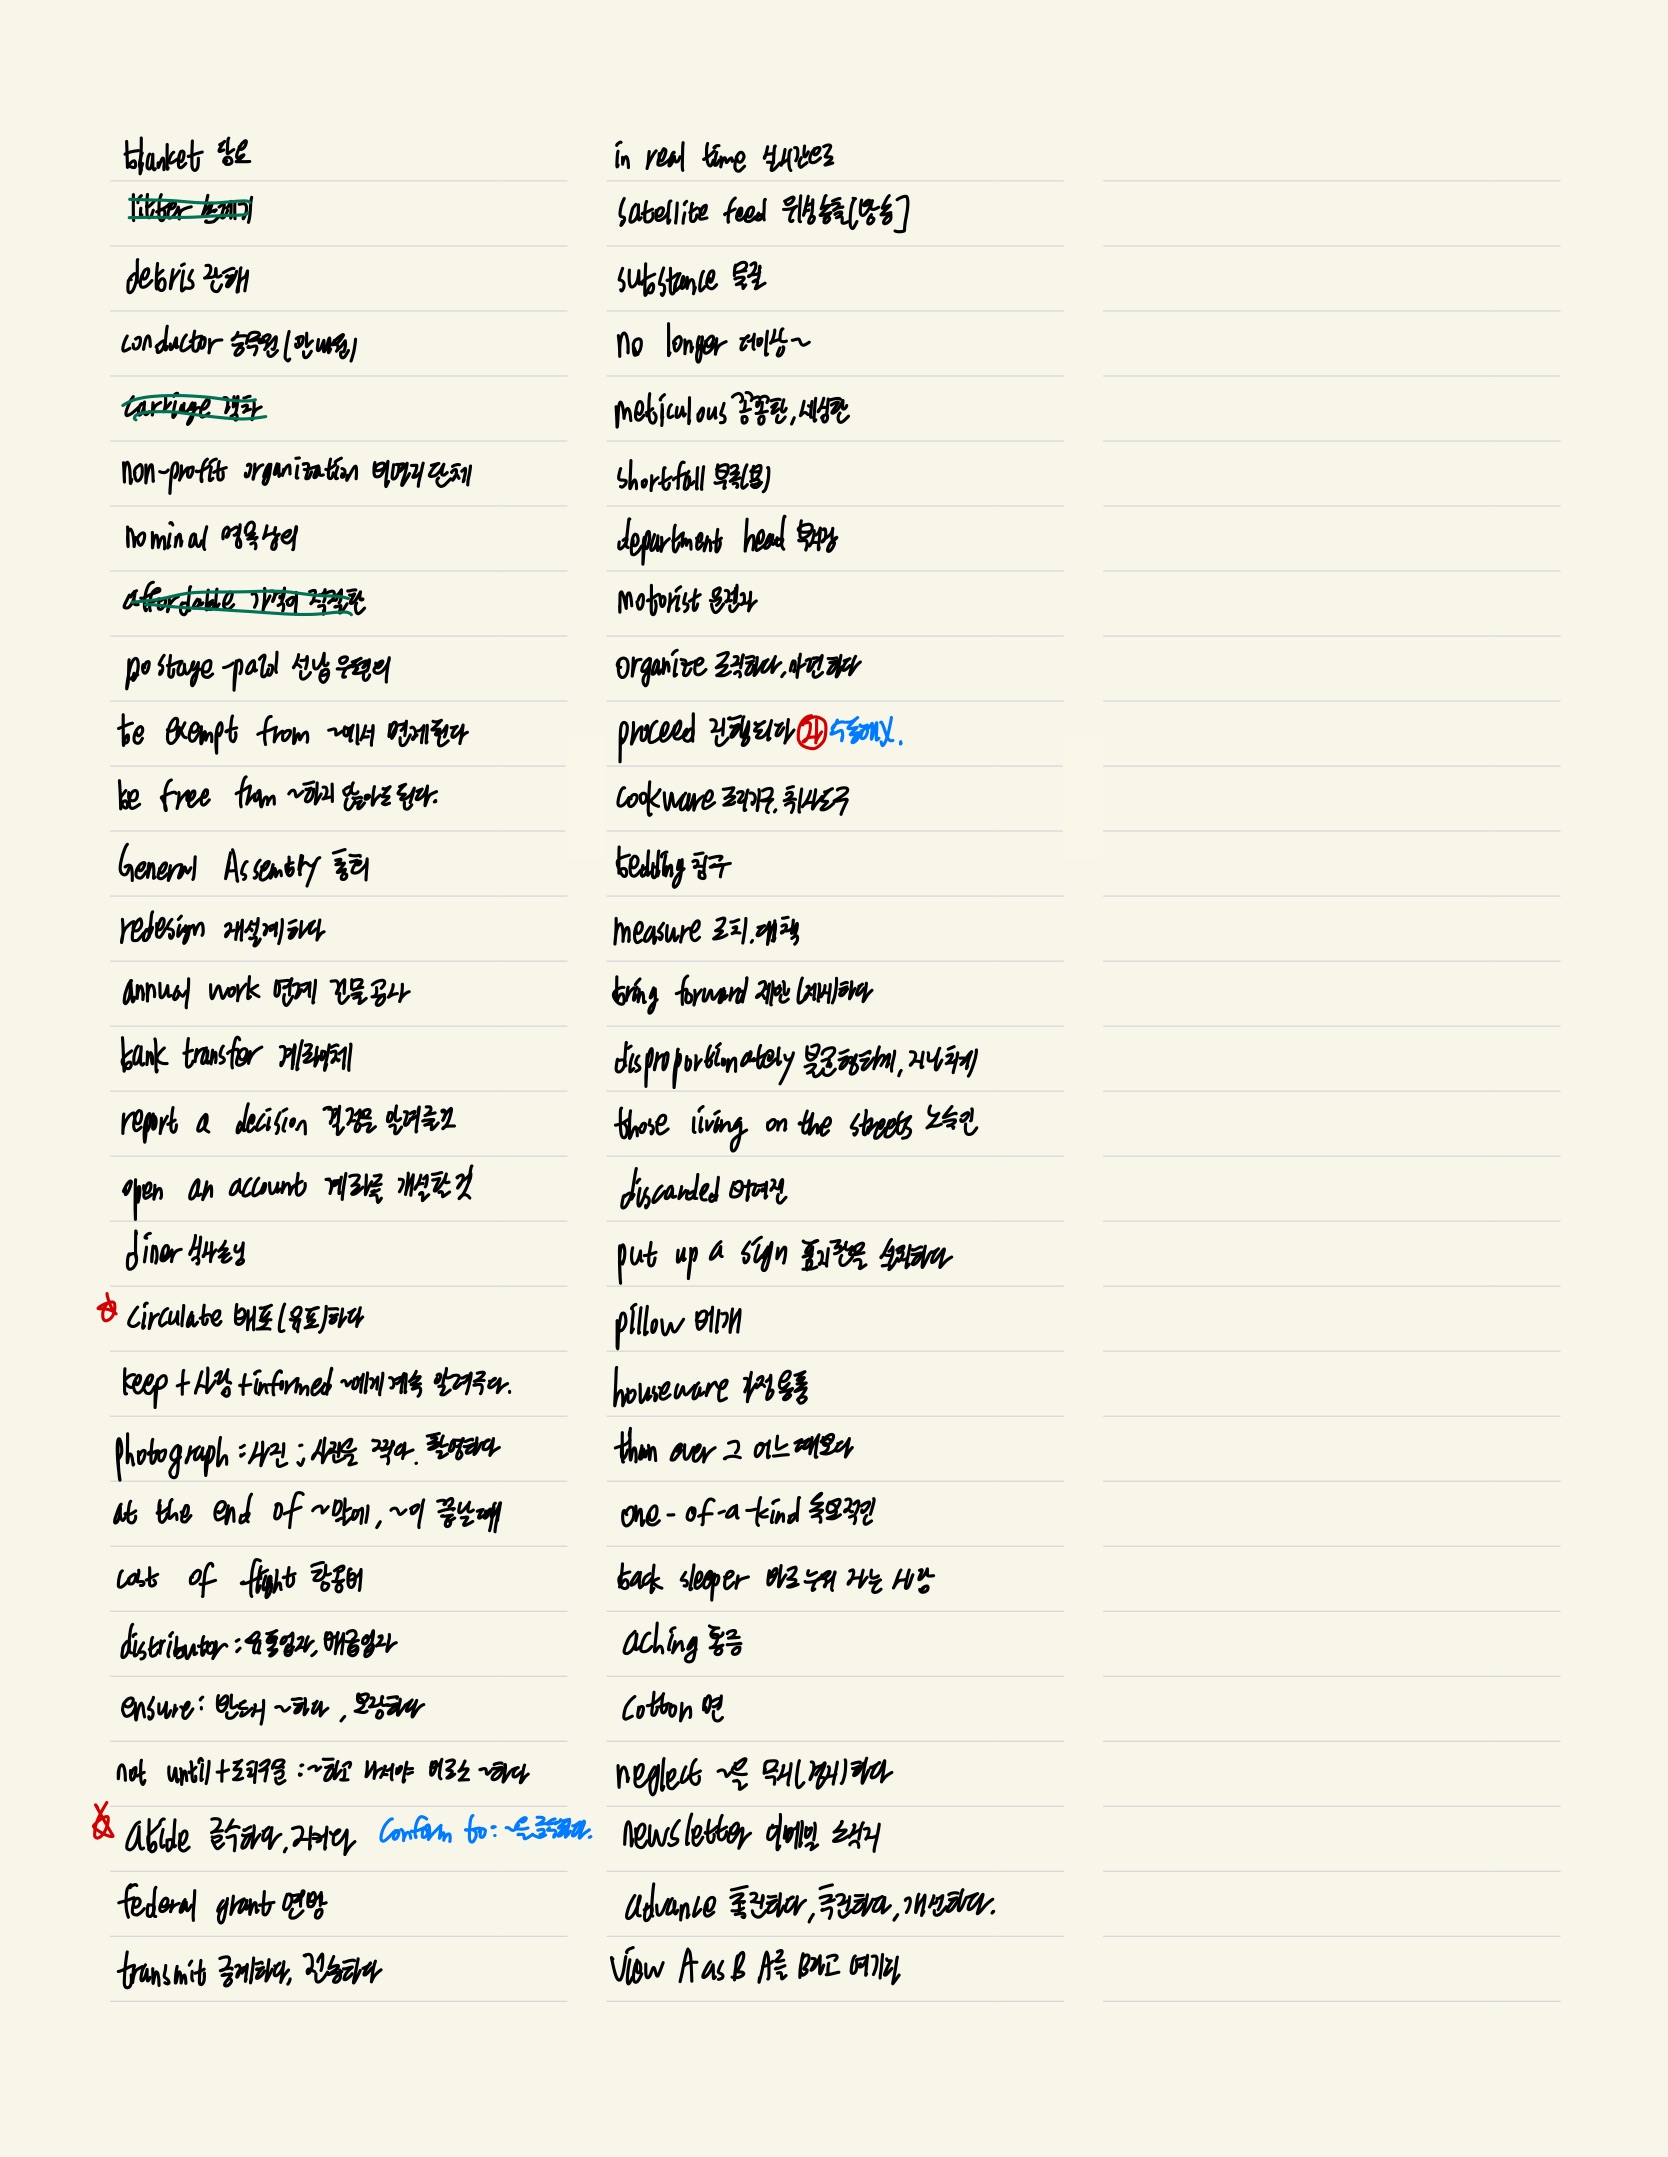 blanket 담요
litter 쓰레기
debris 잔해
conductor 승무원(안내원)
carriage 객차
non-profit organization 비영리단체
nominal 명목상의
affordable 가격이 적절한
postage-paid 선납 우편의
be exempt from ~에서 면제된다
be free from ~하지 않아도 된다.
General Assembly 총회
redesign 재설계하다
annual work 연례 건물공사
bank transfer 계좌이체
report a decision 결정을 알려줄것
open an account 계좌를 개설할것
diner 식사손님
circulate 배포(유포)하다
keep+사람+informed ~에게 계속 알려주다.
photograph : 사진 ; 사진을 찍다. 촬영하다
at the end of ~말에, ~이 끝날때
cost of flight 항공비
distributor : 유통업자, 배급업자
ensure : 반드시 ~하다, 보장하다
not until+도치구문 : ~하고 나서야 비로소 ~하다
abide 준수하다, 지키다 Conform to : ~을 준수하다.
federal grant 연방
transmit 중계하다, 전송하다
in real time 실시간으로
satellite feed 위성송출[방송]
substance 물질
no longer 더이상~
meticulous 꼼꼼한, 세심한
shortfall 부족(분)
department head 부서장
motorist 운전자
organize 조직하다, 마련하다
proceed 진행되다 자 수동태X.
cookware 조리기구. 취사도구
bedding 침구
measure 조치. 대책
bring forward 제안(제시)하다
disproportionately 불균형하게, 지나치게
those living on the streets 노숙인
discarded 버려진
put up a sign 표지판을 설치하다
pillow 베개
houseware 가정용품
than ever 그 어느때보다
one-of-a-kind 독보적인
back sleeper 바로 누워 자는 사람
aching 통증
cotton 면
neglect ~을 무시(경시)하다
newsletter 이메일 소식지
advance 촉진하다, 증진하다, 개선하다.
View A as B A를 B라고 여기다